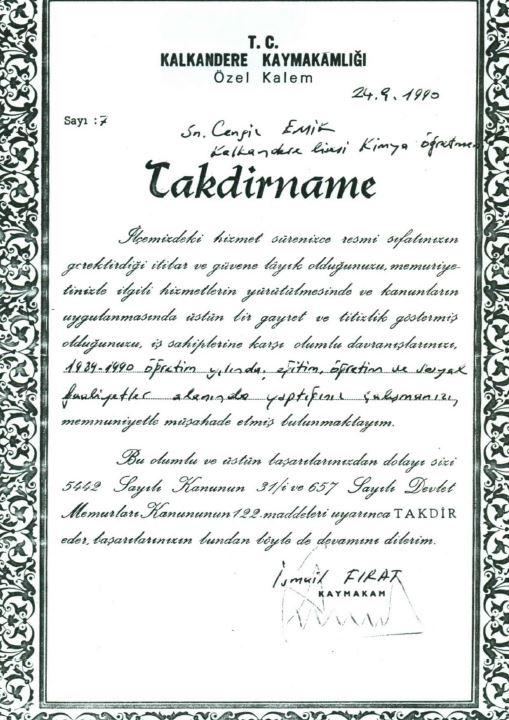 T. C.
KALKANDERE KAYMAKAMLIĞI
Özel Kalem
24.9.1990
Sayı : 7
Sn. Cengiz EMİK
Kalkandere lisesi Kimya öğretmeni
Takdirname
İlçemizdeki hizmet sürenizce resmi sıfatınızın
gerektirdiği itibar ve güvene lâyık olduğunuzu, memuriye-
tinizle ilgili hizmetlerin yürütülmesinde ve kanunların
uygulanmasında üstün bir gayret ve titizlik göstermiş
olduğunuzu, iş sahiplerine karşı olumlu davranışlarınızı,
1989-1990 öğretim yılında, eğitim, öğretim ve sosyal
faaliyetler alanında yaptığınız çalışmanızı,
memnuniyetle müşahade etmiş bulunmaktayım.
Bu olumlu ve üstün başarılarınızdan dolayı sizi
5442 Sayılı Kanunun 31/i ve 657 Sayılı Devlet
Memurları Kanununun 122. maddeleri uyarınca TAKDİR
eder, başarılarınızın bundan böyle de devamını dilerim.
İsmail FIRAT
KAYMAKAM